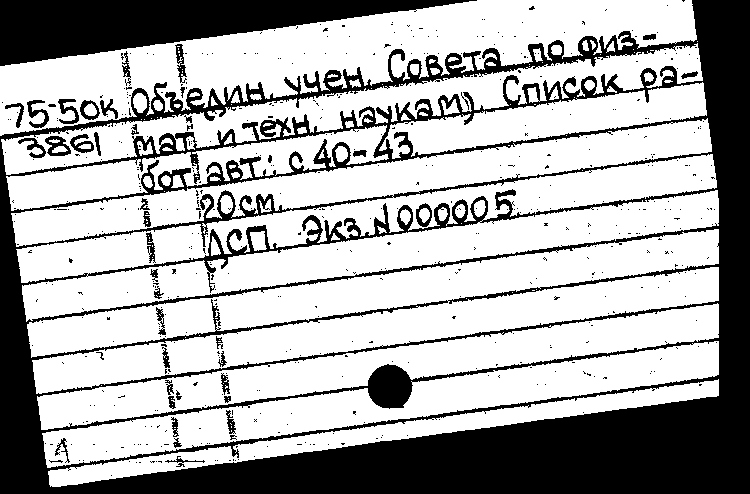 75-50к Объедин. учен. Совета по физ-
3861 мат. и техн. наукам). Список ра-
бот авт.: с 40-43.
20см.
ДСП. Экз. N000005